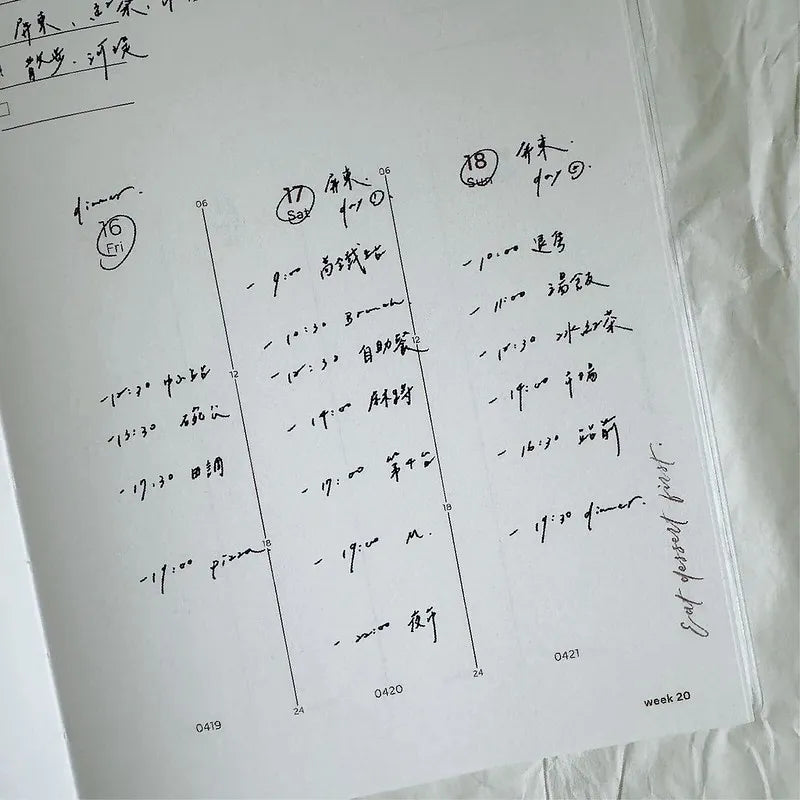 屏東、
散步、河堤
dinner.
16
Fri
06
12
18
24
-12:30
-13:30
-17:30 田調
-19:00 pizza
0419
17
Sat
屏東.
day ①.
06
12
18
24
- 9:00 高鐵站
- 10:30 Brunch
- 12:30 自助餐
- 14:00
- 17:00
- 19:00 M.
- 22:00 夜午
0420
18
Sun
屏東.
day ②.
- 10:00 退房
- 11:00 湯飯
- 12:30 冰紅茶
- 14:00
- 16:30 站前
- 19:30 dinner.
0421
week 20
Eat dessert first.